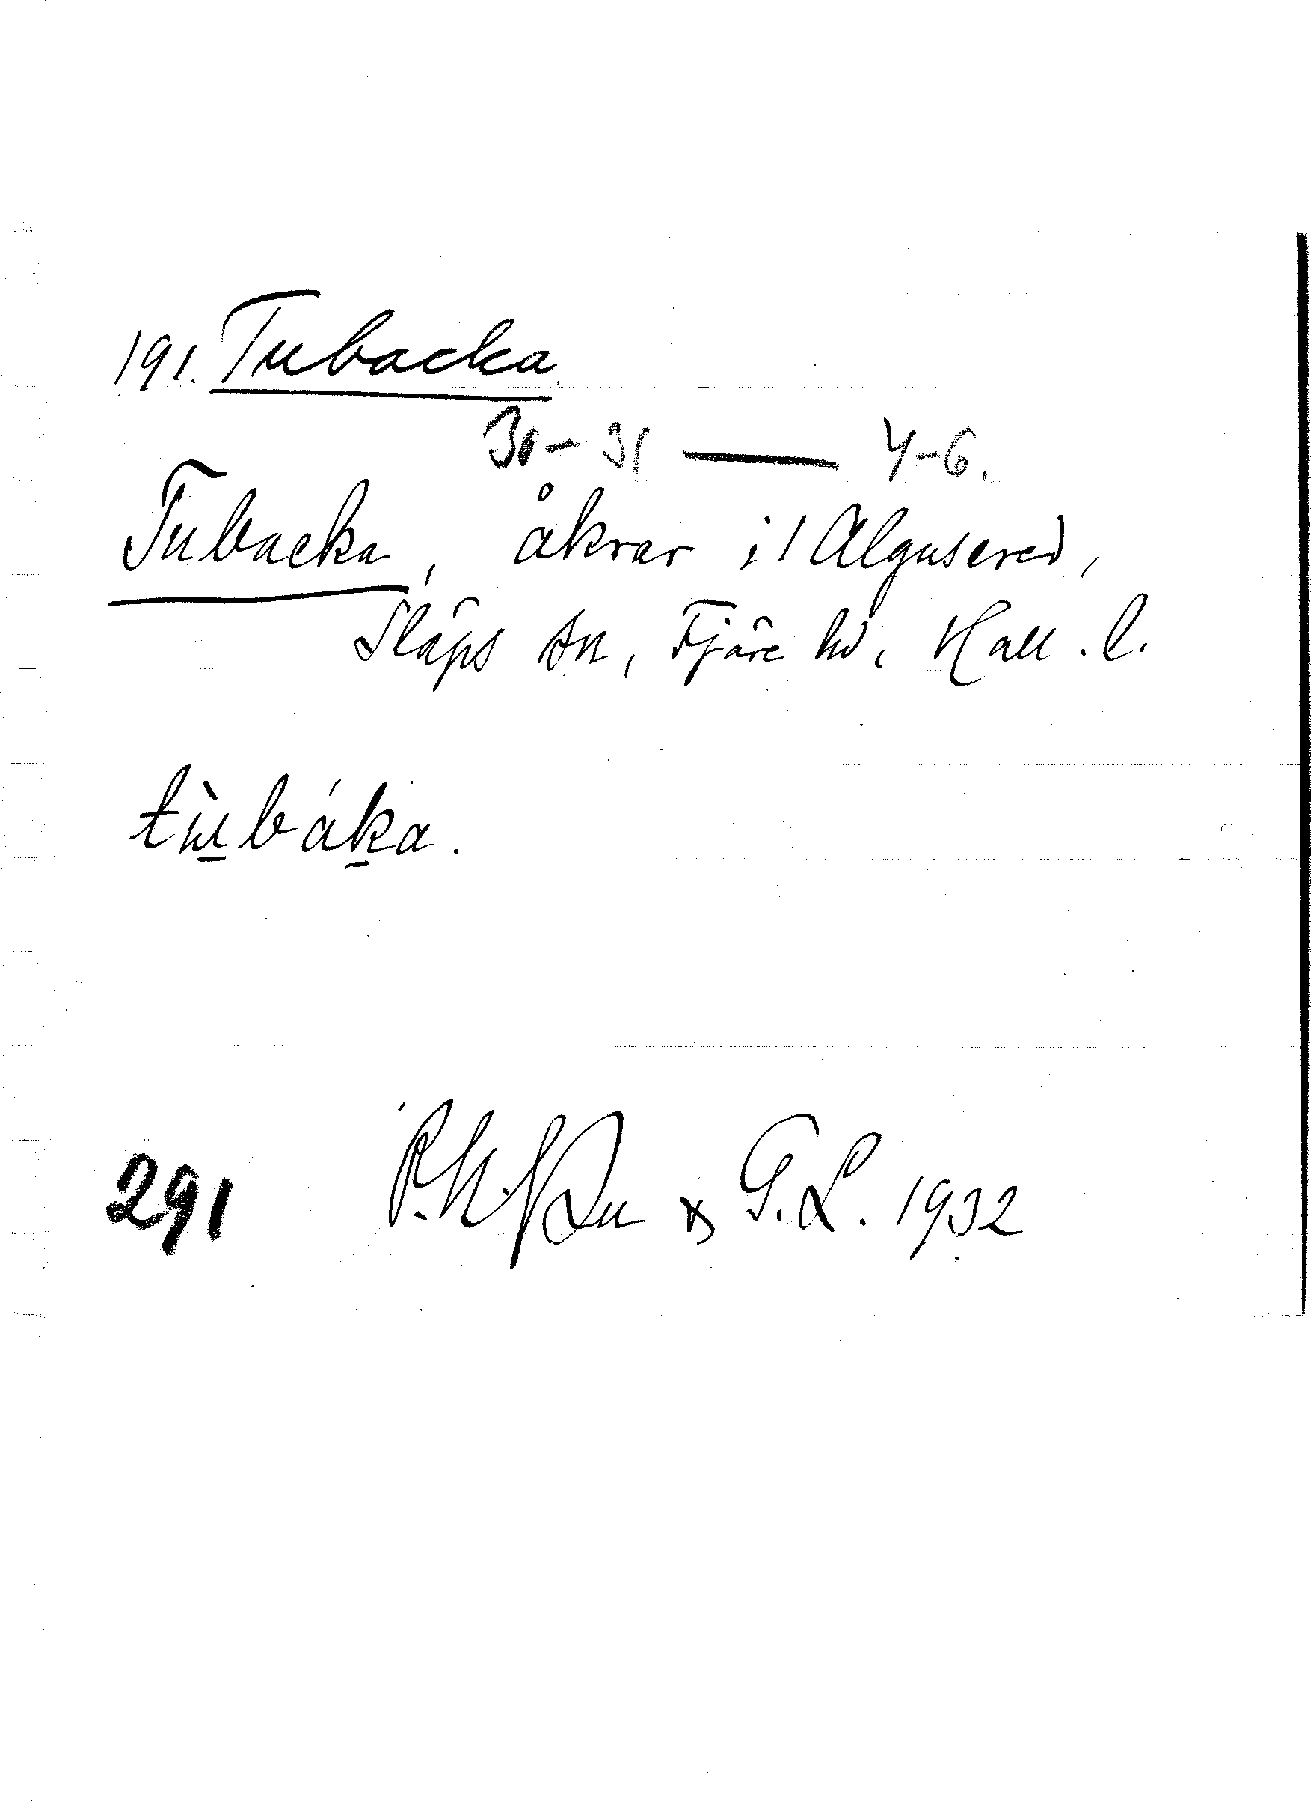 191. Tubacka
30-31 — 4-6.
Tubacka, åkrar i 1 Algusered,
Släps sn, Fjäre hd, Hall. l.
tù̲báḵa.
291 G. L. 1932